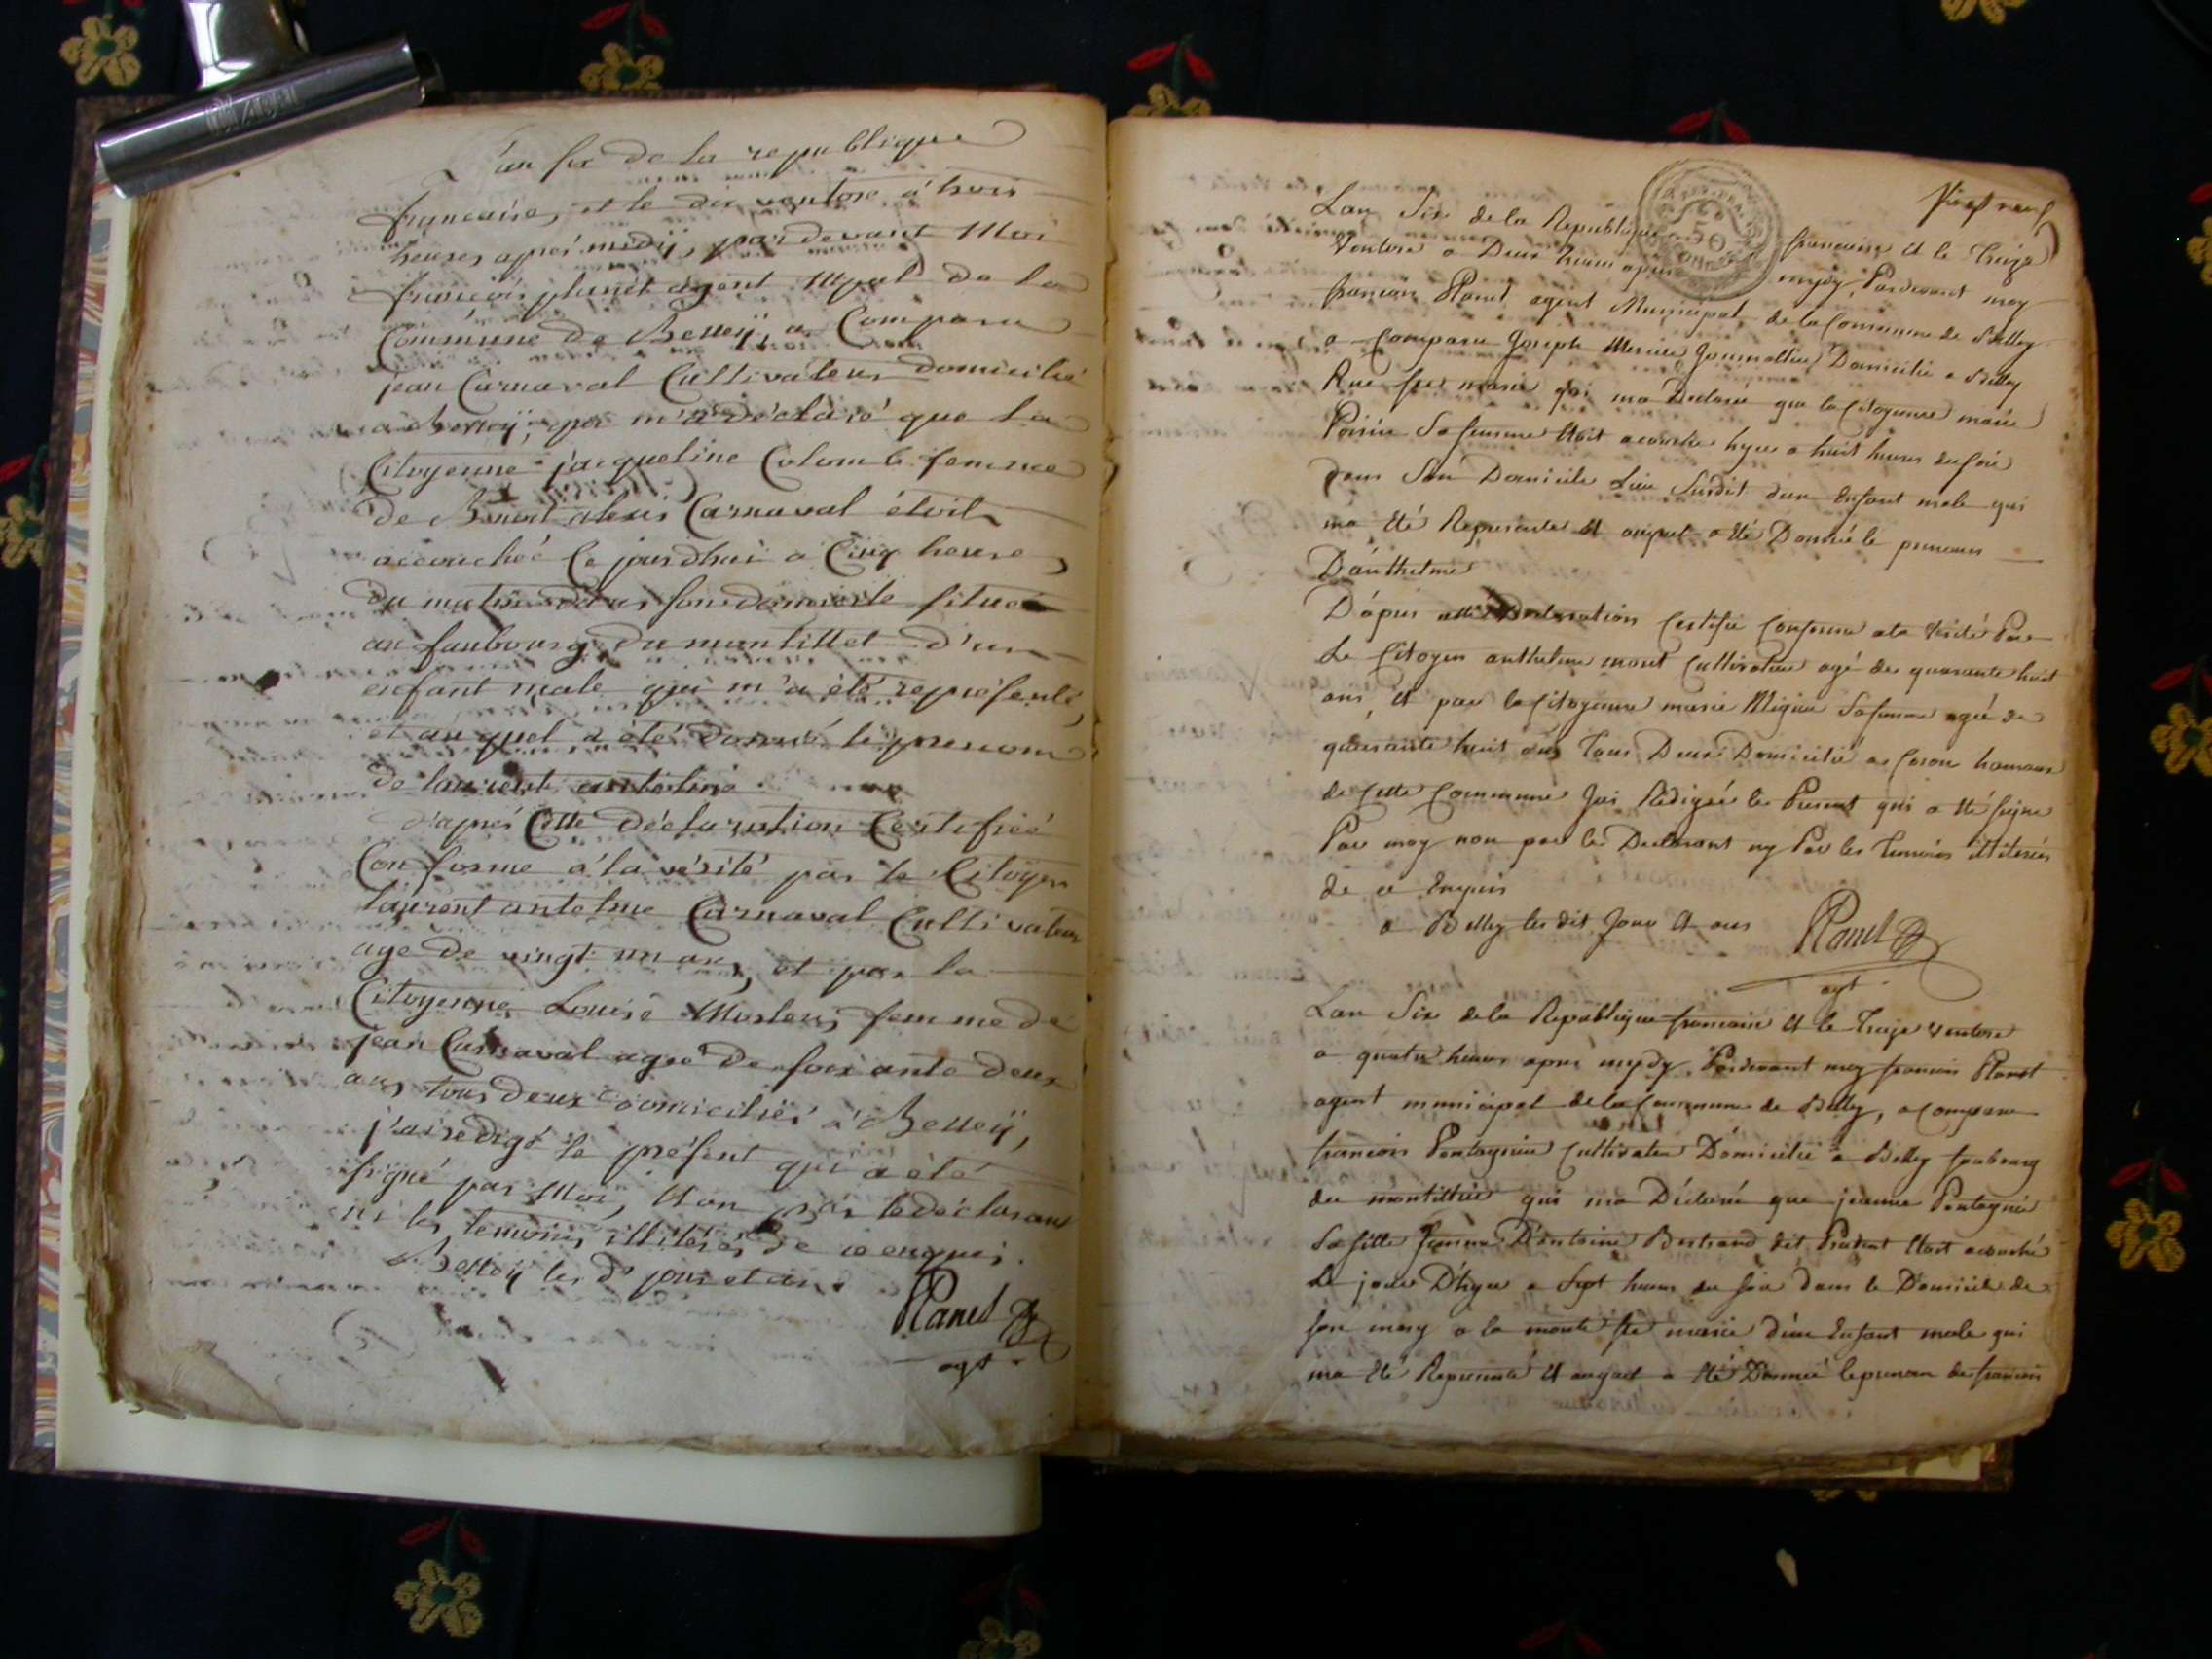 L'an six de la republique
francaise, et le dix ventose à trois
heures apres midÿ, pardevant Moi
francois planet agent Mpal de la
Commune de Belleÿ, a Comparu
jean Carnaval Cultivateur domicilié
a Belleÿ, qui m'a déclaré que la
Citoyenne jacqueline Colomb femme
de Benoit alexis Carnaval étoit
accouchée Ce jourdhui a Cinq heures
du matin dans son domicile situé
au faubourg du montillet d'un
enfant male qui m'a été représenté,
et auquel a été donné le prenom
de laurent antelme
d'aprés Cette déclaration Certifiée
Conforme a la vérité par le Citoyen
laurent antelme Carnaval Cultivateur
age de vingt un ans, et par la
Citoyenne Louise femme de
jean Carnaval agée de soixante deux
ans tous deux domiciliés à Belleÿ,
j'ai redigé le présent qui a été
signé par Moi, Non par le déclarant
ni les temoins illiterés de ce enquis.
a Belleÿ les d' jour et an.
Planet
agt
Lan Six de la Republique francaise et le Treize
Ventose a Deux heures apres mydy, Pardevant moy
francois Planet agent Municipal de la Commune de Belley
a Comparu Joseph Mercier Journallier Domicilié a Belley
Rue ste marie qui ma Declaré que la Citoyenne marie
Poisin Sa femme Etoit acouchée hyer a huit heures du soir
dans Son Domicile Lieu Susdit dun Enfant male qui
ma Eté Representé Et auquel a Eté Donné le prenom
D'anthelme
D'apres cette Declaration Certifié Conforme a la Verité Par
Le Citoyen anthelme mont Cultivateur agé de quarante huit
ans, Et par la Citoyenne marie Sa femme agée de
quarante huit ans Tous Deux Domicilié a hameau
de Cette Commune Jai Rédigée le Present qui a Eté signé
Par moy non par le Declarant ny Par les Temoins illiterés
de ce Enquis
a Belley les dit Jour Et an
Planet
agt
Lan Six de la Republique francaise Et le Treize Ventose
a quatre heures apres mydy, Pardevant moy francois Planet
agent municipal de la Commune de Belley, a Comparu
francois Pontagnier Cultivateur Domicilié a Belley faubourg
du montillier qui ma Déclaré que jeanne Pontagnier
Sa fille femme D'antoine Bertrand dit Prudent Etoit acouché
Le jour D'hyer a Sept heures du soir dans le Domicile de
son mary a la monté ste marie d'un Enfant male qui
ma Eté Representé Et auquel a Eté Donneé le prenom de francois